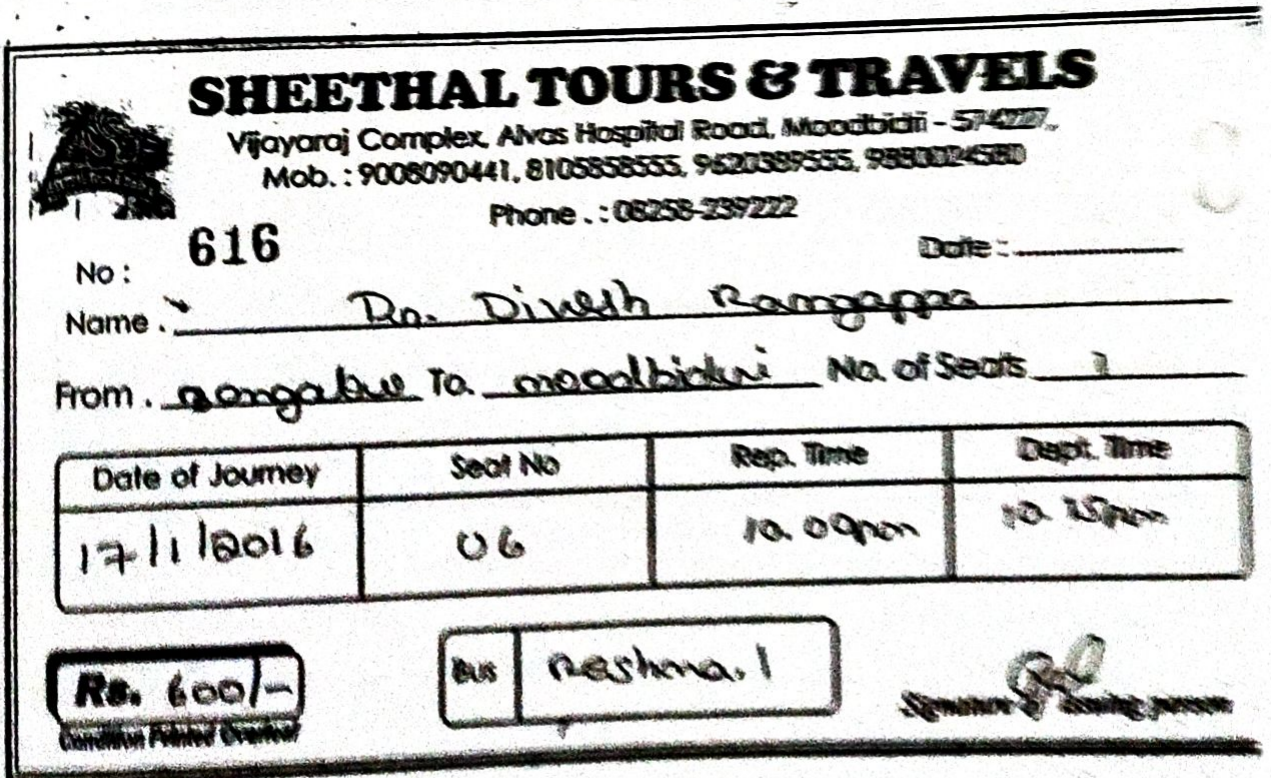 SHEETHAL TOURS & TRAVELS
Vijayaraj Complex, Alvas Hospital Road, Moodbidri - 574227,
Mob. : 9008090441, 8105858555, 9620389555,
Phone . : 08258-239222
No : 616 Date :
Name . Dr. Dinesh Rangappa
From . To. moodbidri No. of Seats 1
Date of Journey Seat No Rep. Time Dept. Time
17/1/2016 06 10.00pm 10.25pm
Rs. 600/- BUS Reshma.1
Condition Printed Overleaf Signature of issuing person